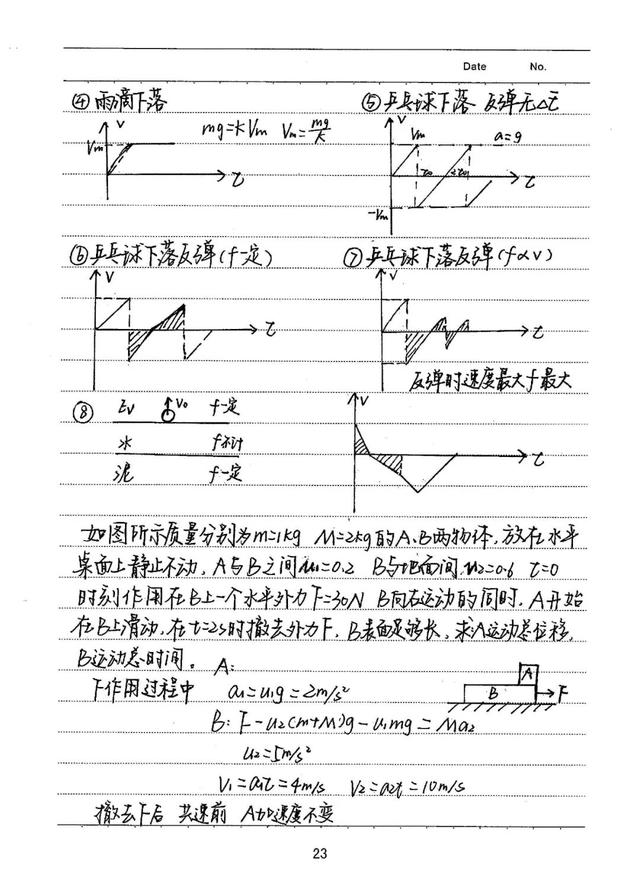 Date No.
④ 雨滴下落
V
Vm
mg=kVm Vm=mg/k
t
⑤ 乒乓球下落 反弹无Δt
V
Vm
a=g
t₀
2t₀
t
-Vm
⑥ 乒乓球下落反弹(f一定)
V
t
⑦ 乒乓球下落反弹(f∝v)
V
t
反弹时速度最大f最大
⑧ 空 V₀ f一定
水 f不计
泥 f一定
V
t
如图所示质量分别为m=1kg M=2kg的A.B两物体,放在水平
桌面上静止不动,A与B之间u₁=0.2 B与地面间u₂=0.6 t=0
时刻作用在B上一个水平外力F=30N B向右运动的同时,A开始
在B上滑动,在t=2s时撤去外力F,B表面足够长,求A运动总位移,
B运动总时间。 A:
F作用过程中 a₁=u₁g=2m/s²
A
B
F
B: F-u₂(m+M)g-u₁mg=Ma₂
u₂=5m/s²
V₁=a₁t=4m/s V₂=a₂t=10m/s
撤去F后 共速前 A加速度不变
23